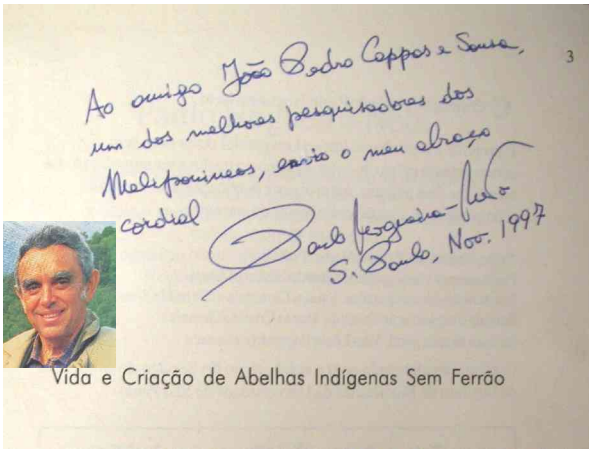 3
Ao amigo João Pedro Cappas e Sousa,
um dos melhores pesquisadores dos
Meliponineos, envio o meu abraço
cordial
Paulo Nogueira-Neto
S. Paulo, Nov. 1997
Vida e Criação de Abelhas Indígenas Sem Ferrão